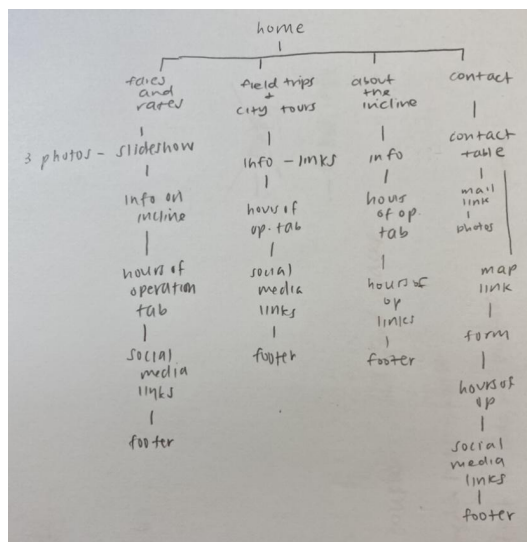 home
fares
and
rates
3 photos - slideshow
info on
incline
hours of
operation
tab
social
media
links
footer
field trips
+
city tours
info - links
hours of
op. tab
social
media
links
footer
about
the
incline
info
hours
of op.
tab
hours of
op
links
footer
contact
contact
table
mail
link
photos
map
link
form
hours of
op
social
media
links
footer